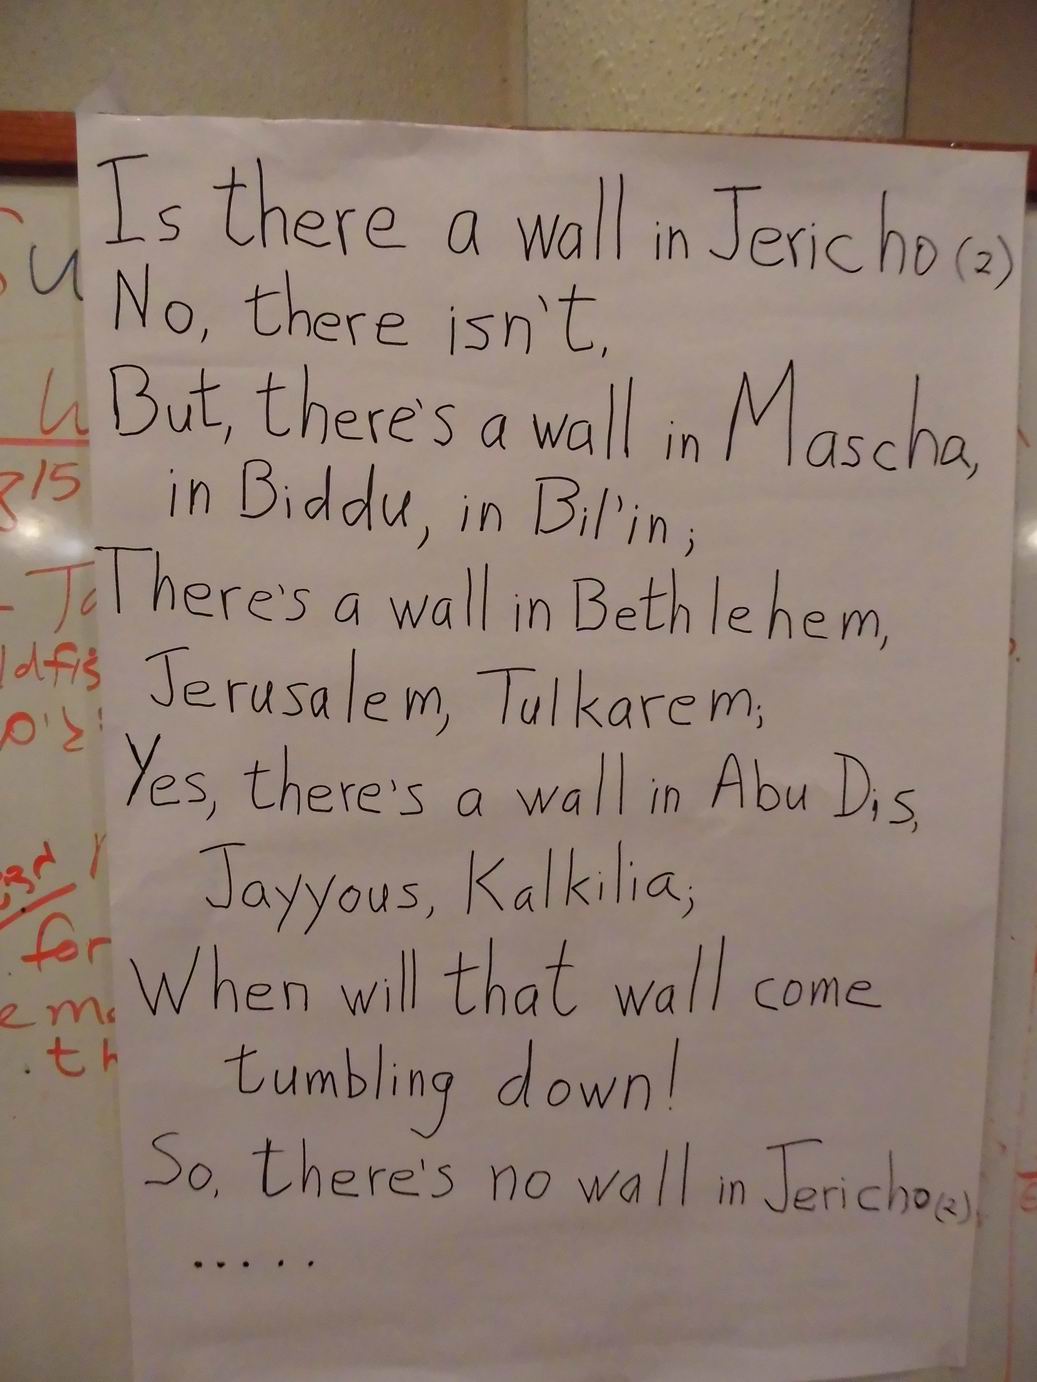 Is there a wall in Jericho (2)
No, there isn't,
But, there's a wall in Mascha,
in Biddu, in Bil'in;
There's a wall in Bethlehem,
Jerusalem, Tulkarem;
Yes, there's a wall in Abu Dis,
Jayyous, Kalkilia;
When will that wall come
tumbling down!
So, there's no wall in Jericho (2)
.....
for